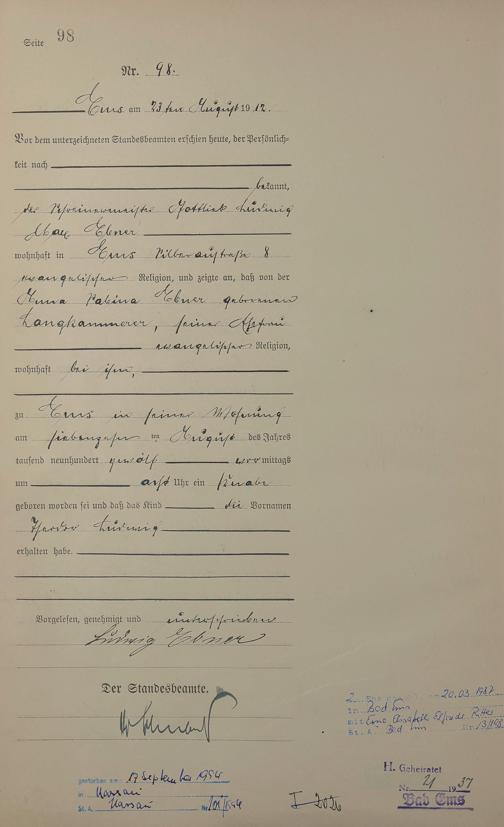 Seite 98
Nr. 98.
Ems am 23ten August 1912.
Vor dem unterzeichneten Standesbeamten erschien heute, der Persönlich-
keit nach
bekannt,
der Schreinermeister Gottlieb Ludwig
Max Ebner
wohnhaft in Ems Silberaustraße 8
evangelischer Religion, und zeigte an, daß von der
Anna Sabina Ebner geborenen
Langkammerer, seiner Ehefrau
evangelischer Religion,
wohnhaft bei ihm,
zu Ems in seiner Wohnung
am siebenzehn ten August des Jahres
tausend neunhundert zwölf vormittags
um acht Uhr ein Knabe
geboren worden sei und daß das Kind die Vornamen
Theodor Ludwig
erhalten habe.
Vorgelesen, genehmigt und unterschrieben
Ludwig Ebner
Der Standesbeamte.
2. 20.03.1937
in Bad Ems
mit Elisabeth Ritter
St. A. Bad Ems
H. Geheiratet
Nr. 21 1937
Bad Ems
gestorben am 17. September 1954
in Nassau
St. A. Nassau Nr.